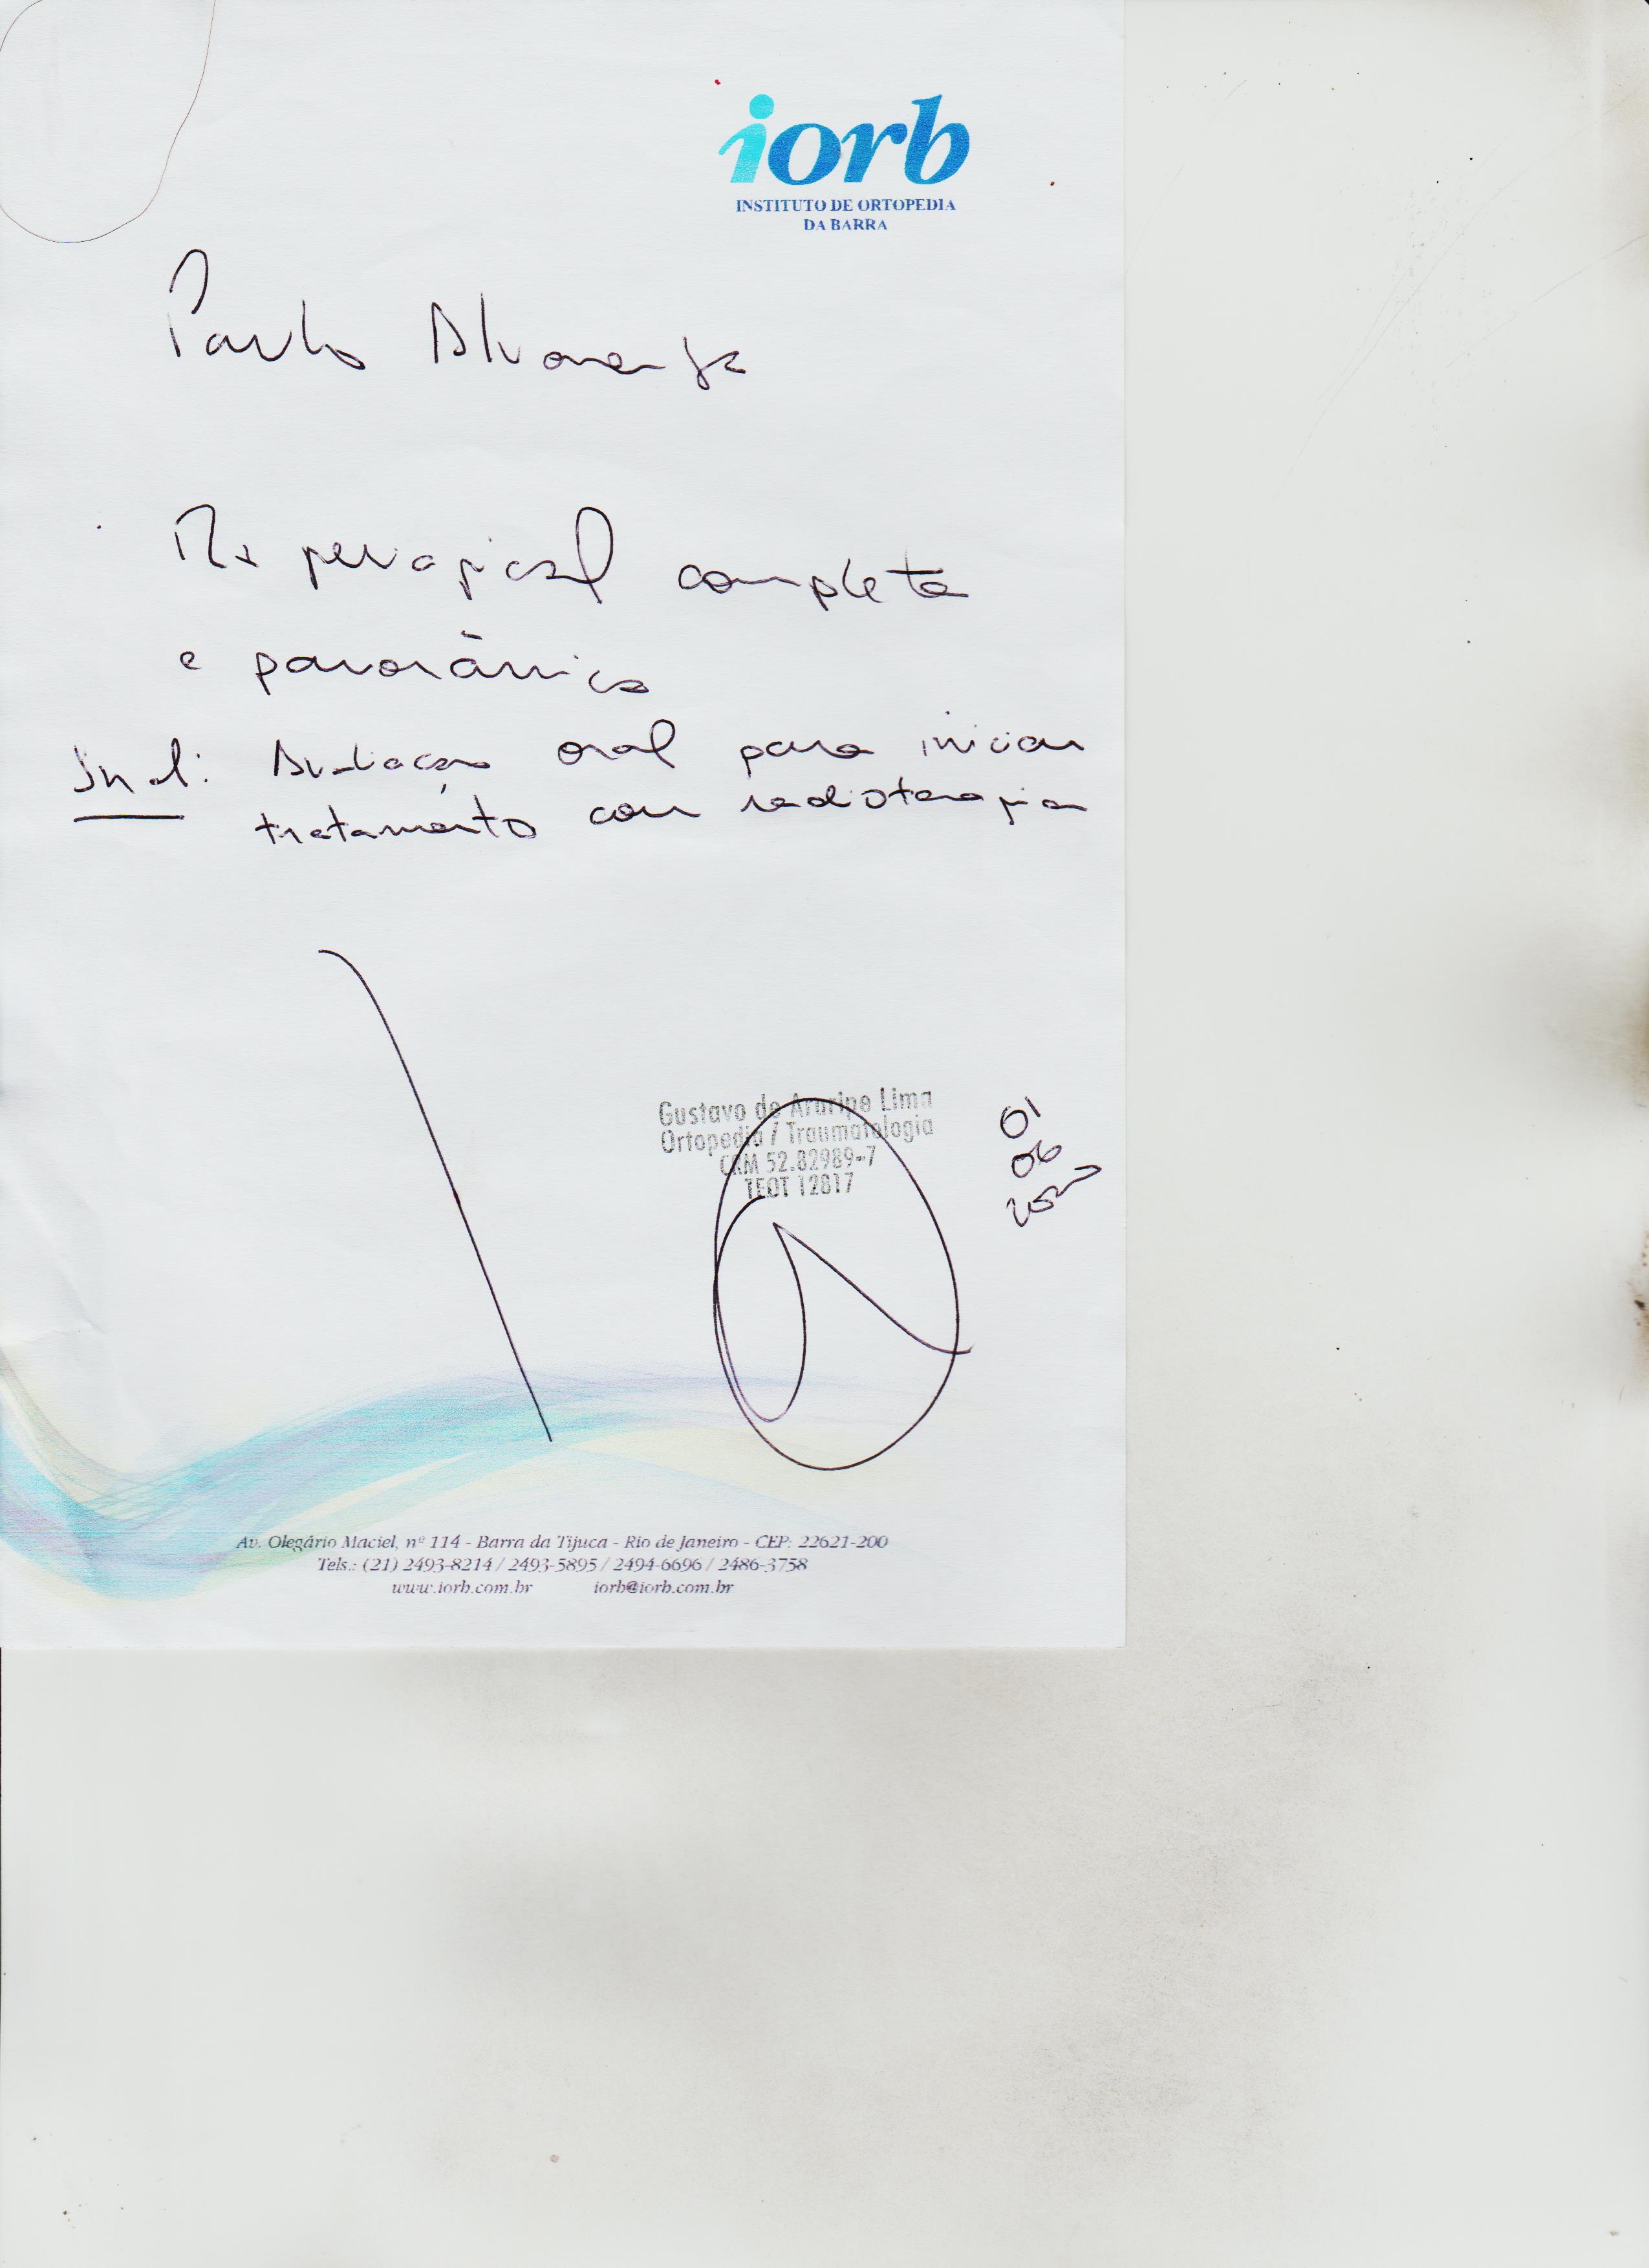 iorb
INSTITUTO DE ORTOPEDIA
DA BARRA
Paulo Alvarenga
Rx periapical completa
e panorâmica
Ind: Avaliação oral para iniciar
tratamento com radioterapia
Gustavo de Araripe Lima
Ortopedia / Traumatologia
CRM 52.82989-7
TEOT 12817
01
06
Av. Olegário Maciel, nº 114 - Barra da Tijuca - Rio de Janeiro - CEP: 22621-200
Tels.: (21) 2493-8214 / 2493-5895 / 2494-6696 / 2486-3758
www.iorb.com.br iorb@iorb.com.br